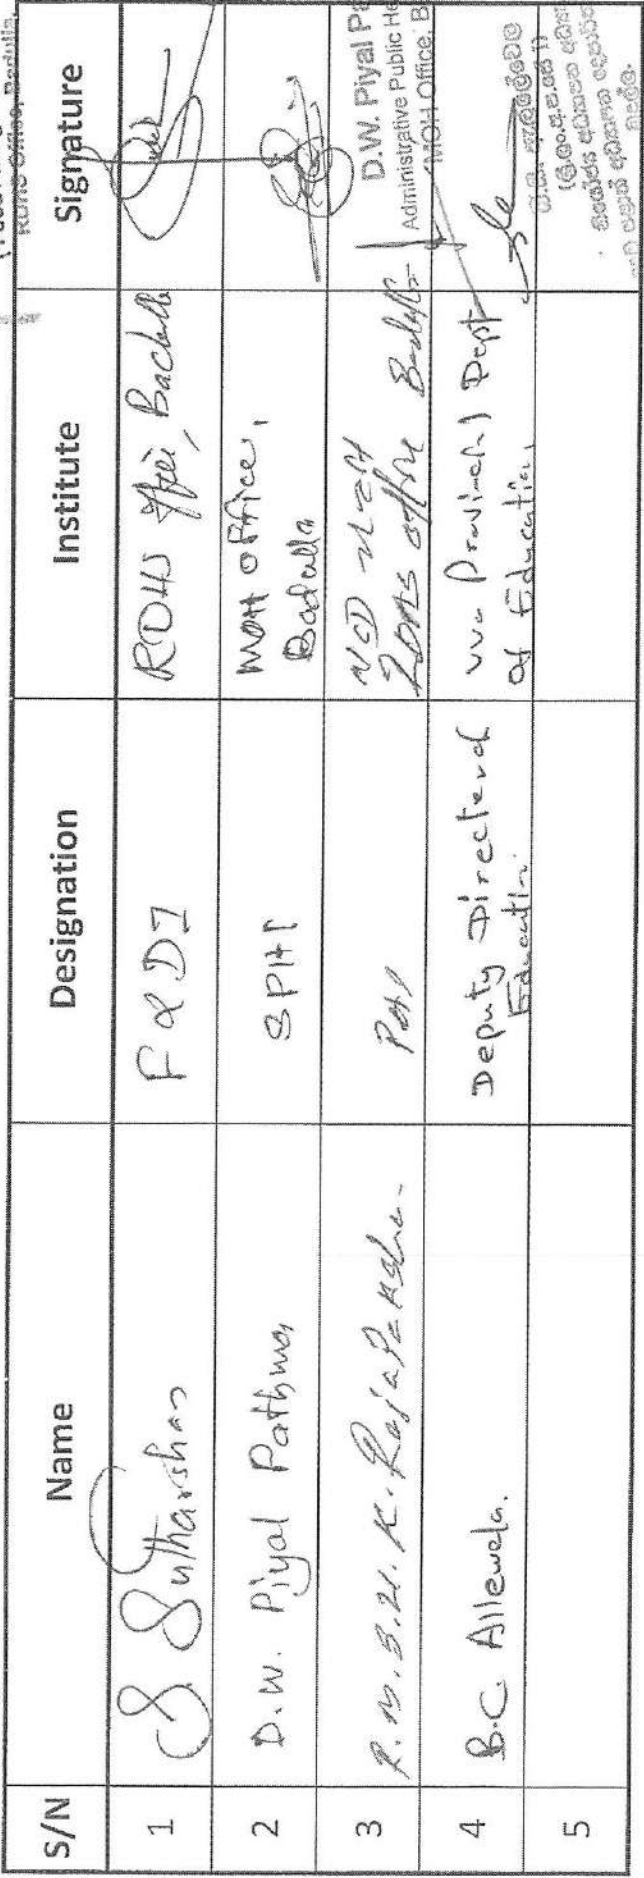 RDHS Office, Badulla.
S/N Name Designation Institute Signature
1 S Sutharshan F & DI RDHS Office, Badulla
2 D.W. Piyal Pathma SPHI MOH office,
Badulla
3 R.M.S.H.K. Rajapaksha PHI NCD Unit
RDHS office Badulla
D.W. Piyal Pa
Administrative Public He
MOH Office, B
4 B.C. Allewela. Deputy Director of
Education. Uva Provincial Dept
of Education,
5